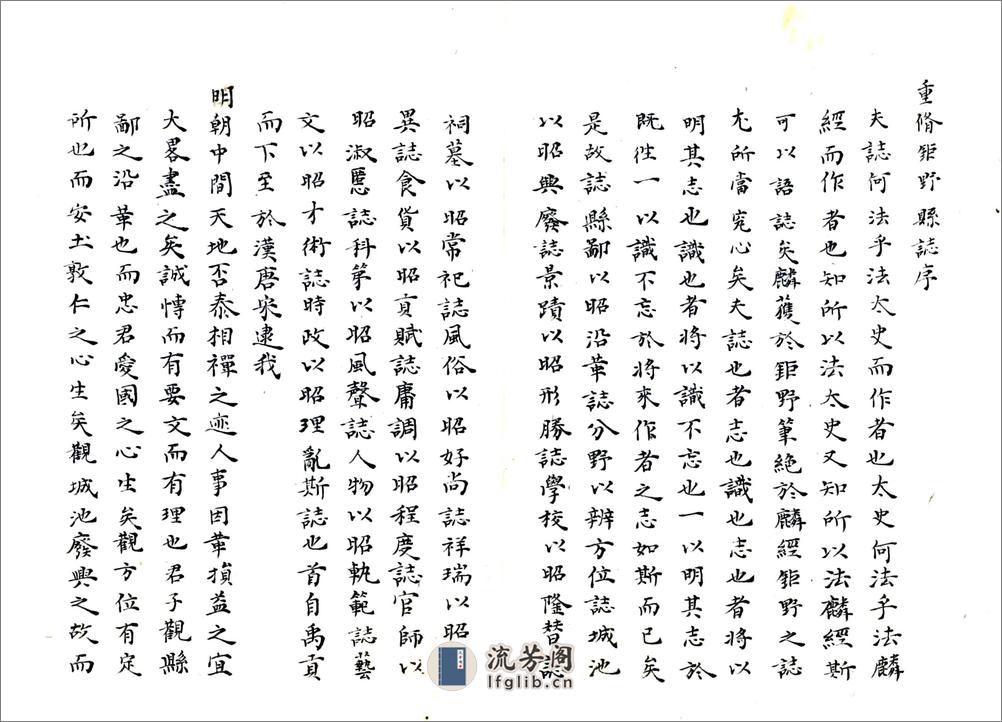 重脩鉅野縣誌序
夫誌何法乎法太史而作者也太史何法乎法麟
經而作者也知所以法太史又知所以法麟經斯
可以語誌矣麟獲於鉅野筆絕於麟經鉅野之誌
尤所當究心矣夫誌也者志也識也志也者將以
明其志也識也者將以識不忘也一以明其志於
既徃一以識不忘於將來作者之志如斯而已矣
是故誌縣鄙以昭沿革誌分野以辨方位誌城池
以昭興廢誌景蹟以昭形勝誌學校以昭隆替誌
祠墓以昭常祀誌風俗以昭好尚誌祥瑞以昭
異誌食貨以昭貢賦誌庸調以昭程度誌官師以
昭淑慝誌科苐以昭風聲誌人物以昭軌範誌藝
文以昭才術誌時政以昭理亂斯誌也首自禹貢
而下至於漢唐宋逮我
明朝中間天地否泰相禪之迹人事因革損益之宜
大畧盡之矣誠慱而有要文而有理也君子觀縣
鄙之沿革也而忠君愛國之心生矣觀方位有定
所也而安土敦仁之心生矣觀城池廢興之故而
流芳阁
lfglib.cn